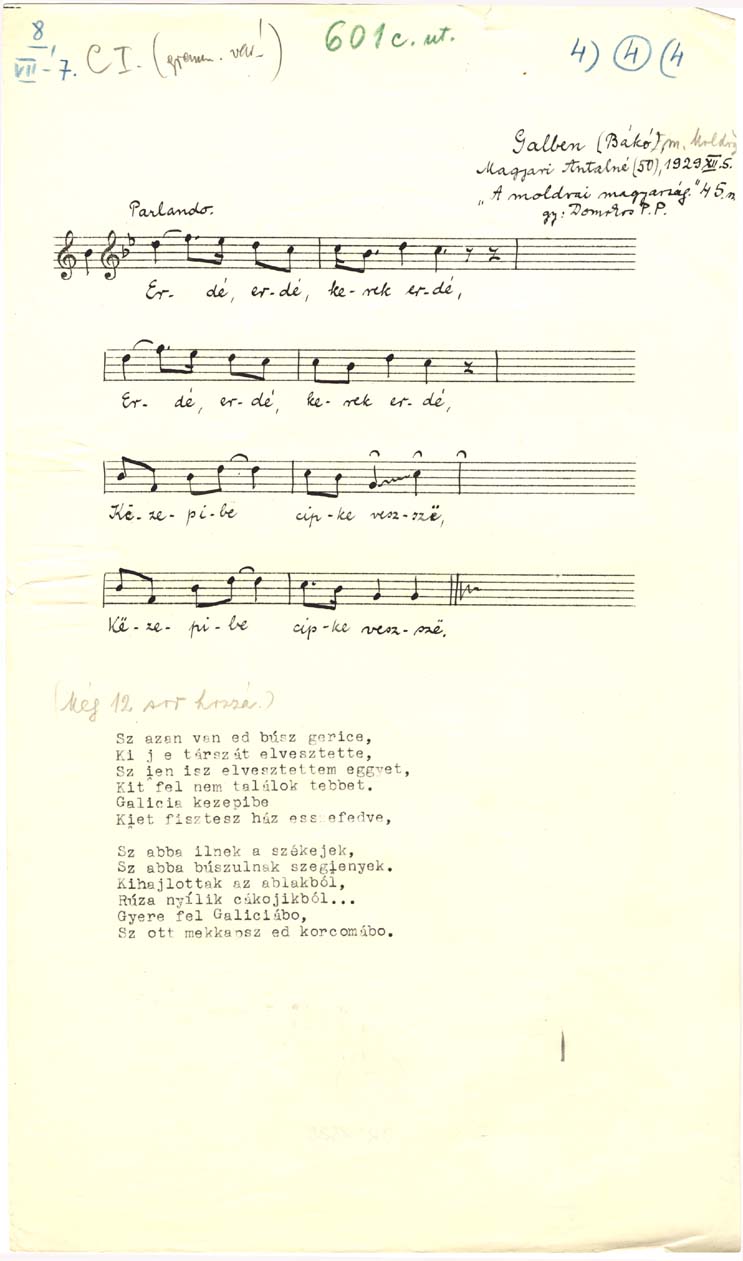 8
VII - 7. C I. (gramm. vált.)
601 c. ut.
4) 4 (4
Galben (Bákó), m. Moldva
Magyari Antalné (50), 1929 XII. 5.
„A moldvai magyarság." 45. n
gy: Domokos P. P.
Parlando.
Er- dé, er-dé, ke-rek er-dé,
Er- dé, er-dé, ke-rek er-dé,
Kë-ze-pi-be cip-ke vesz-szë,
Kë-ze-pi-be cip-ke vesz-szë.
(Még 12 sor hozzá.)
Sz azan van ed búsz gerice,
Ki j e társzát elvesztette,
Sz ien isz elvesztettem eggyet,
Kit fel nem találok tebbet.
Galicia kezepibe
Kiet fisztesz ház essefedve,
Sz abba ilnek a székejek,
Sz abba búszulnak szegienyek.
Kihajlottak az ablakból,
Rúza nyílik cákojikból...
Gyere fel Galiciábo,
Sz ott mekkapsz ed korcomábo.